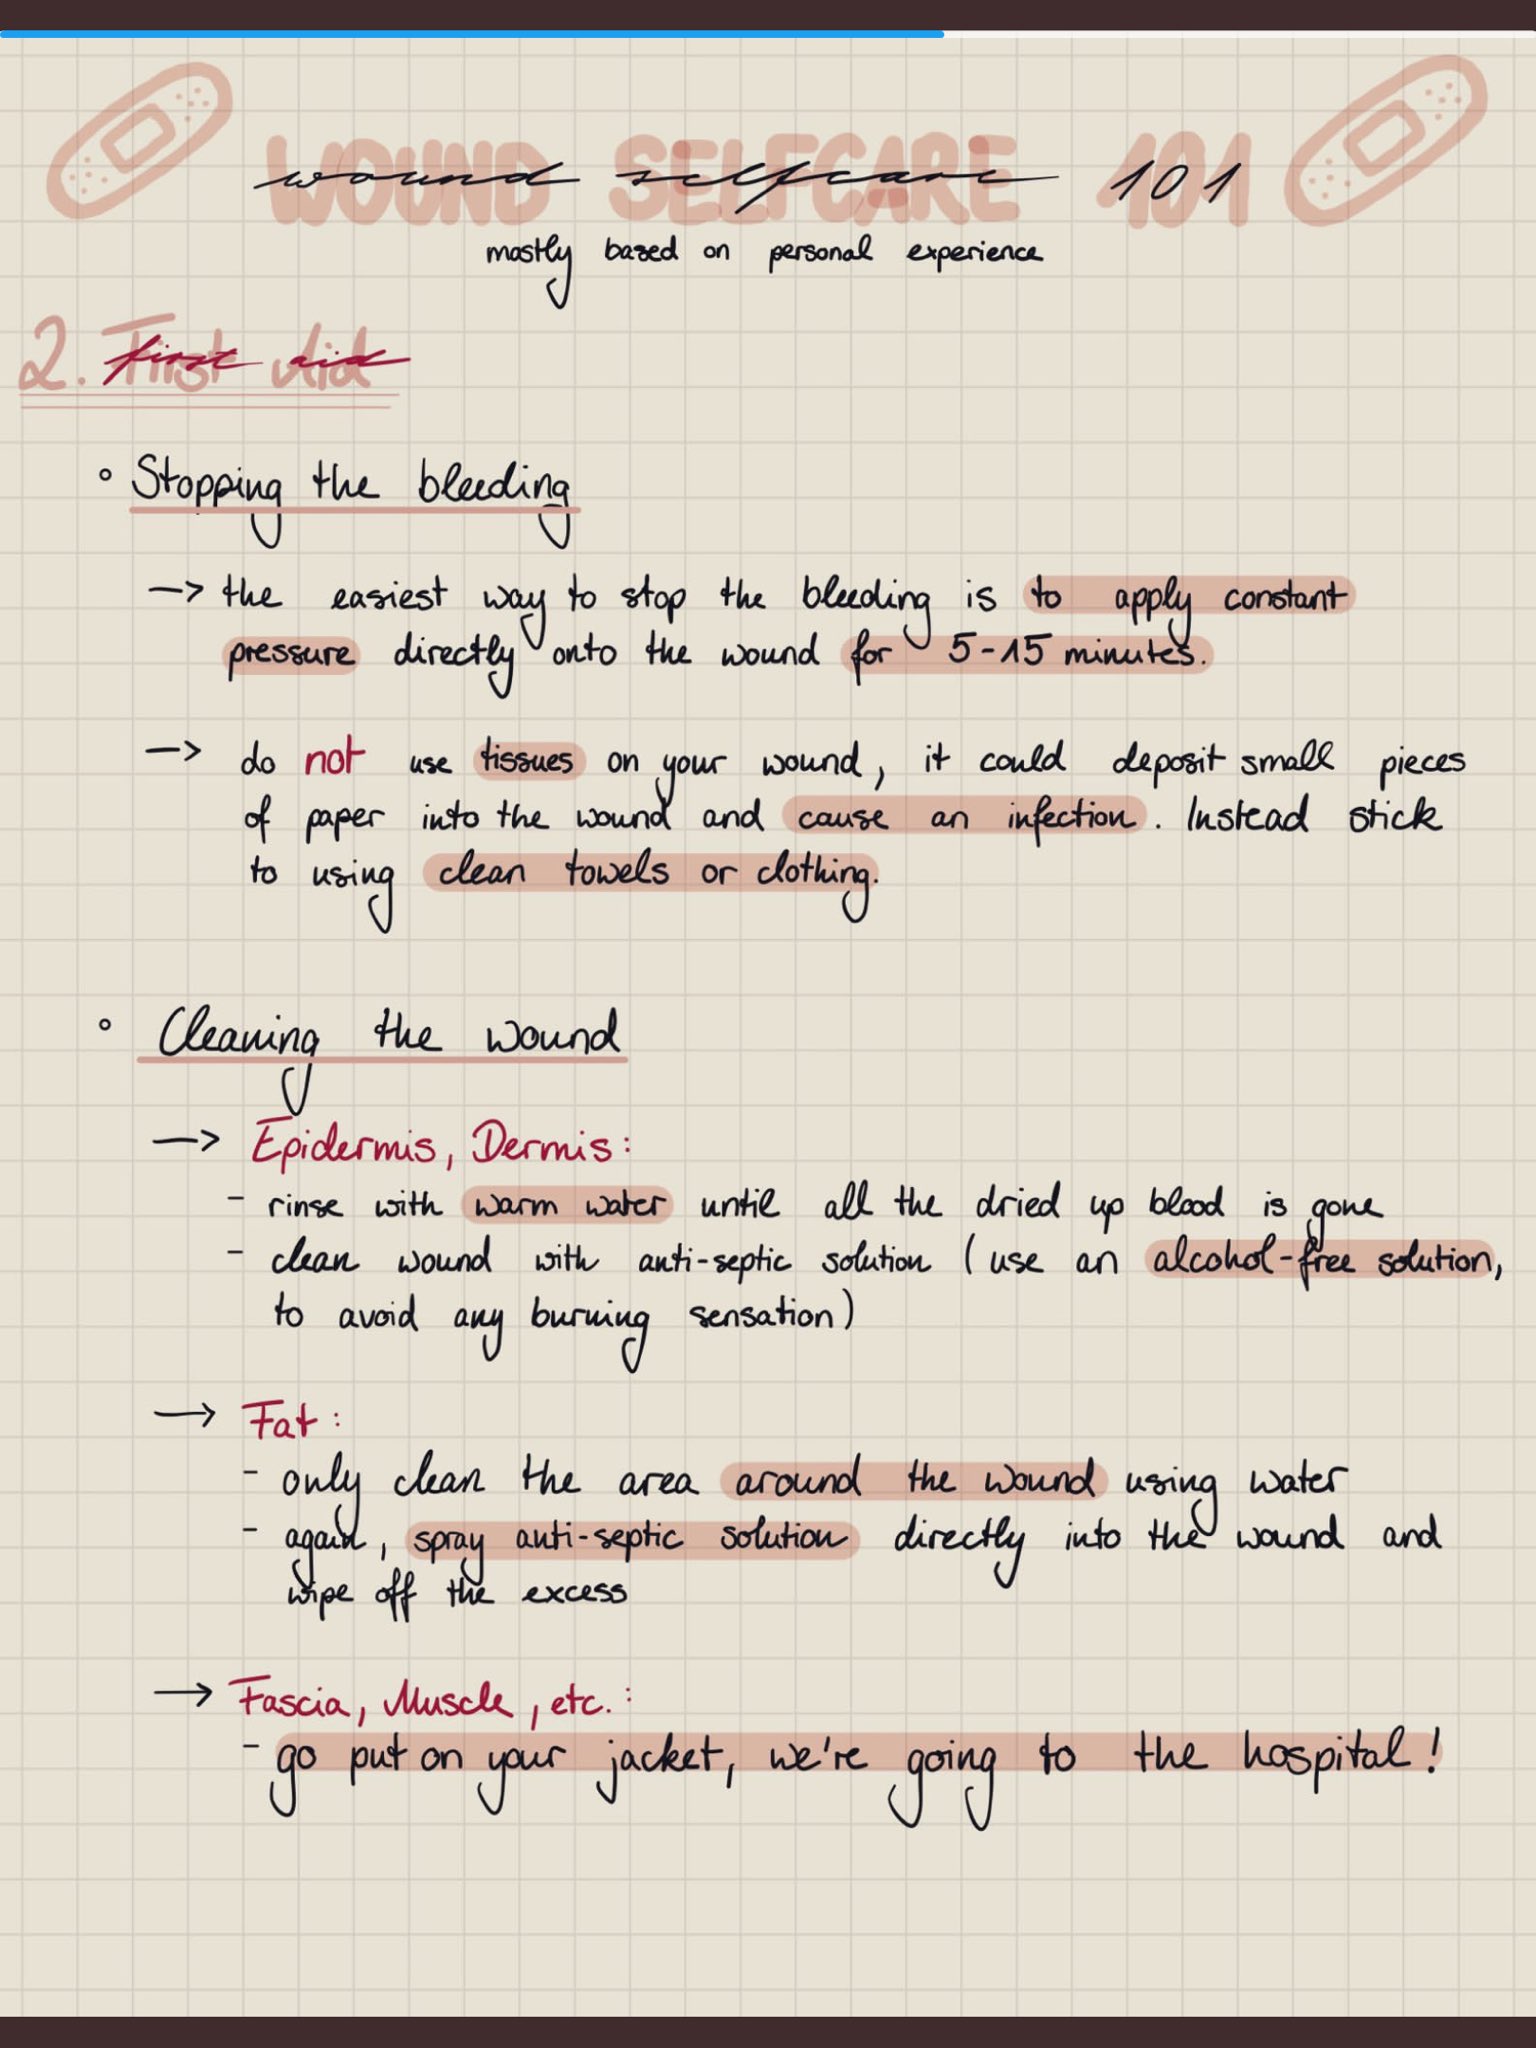 WOUND SELFCARE 101
wound selfcare 101
mostly based on personal experience
2. First Aid
first aid
° Stopping the bleeding
-> the easiest way to stop the bleeding is to apply constant
pressure directly onto the wound for 5-15 minutes.
-> do not use tissues on your wound, it could deposit small pieces
of paper into the wound and cause an infection. Instead stick
to using clean towels or clothing.
° Cleaning the wound
-> Epidermis, Dermis:
- rinse with warm water until all the dried up blood is gone
- clean wound with anti-septic solution (use an alcohol-free solution,
to avoid any burning sensation)
-> Fat:
- only clean the area around the wound using water
- again, spray anti-septic solution directly into the wound and
wipe off the excess
-> Fascia, Muscle, etc.:
- go put on your jacket, we're going to the hospital!